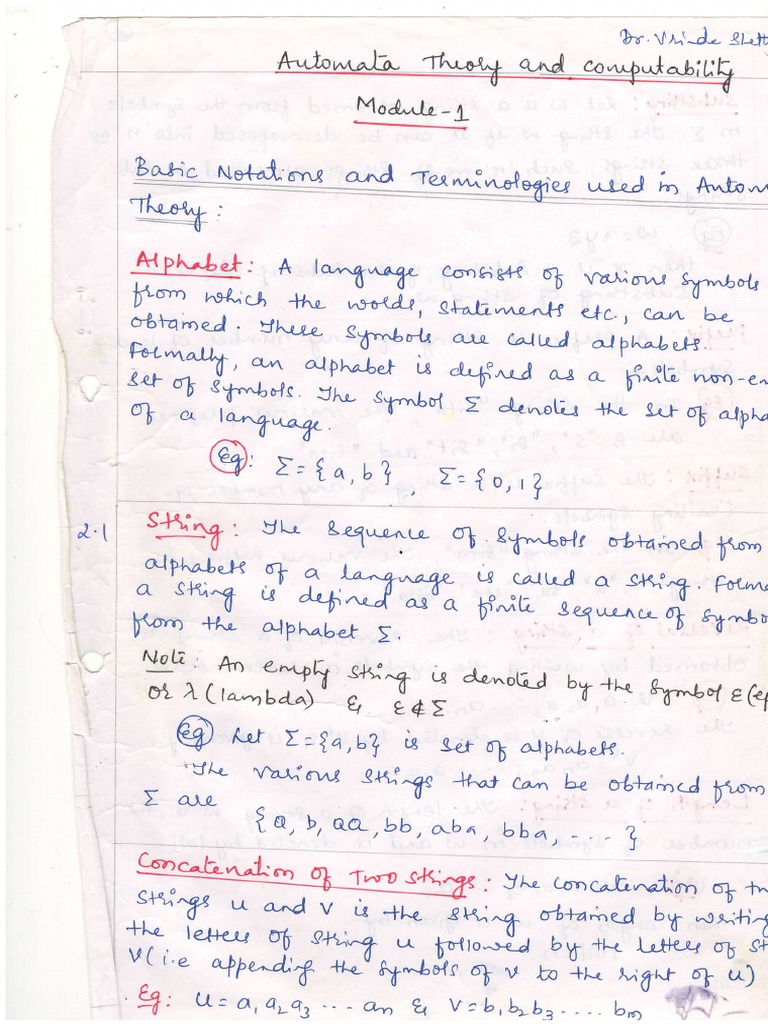 Dr. Vrinda Shett
Automata Theory and computability
Module-1
Basic Notations and Terminologies used in Autom
Theory:
Alphabet: A language consists of various symbols
from which the words, statements etc., can be
obtained. These symbols are called alphabets.
Formally, an alphabet is defined as a finite non-em
set of symbols. The symbol Σ denotes the set of alpha
of a language.
Eg: Σ = {a, b}, Σ = {0, 1}
2.1 String: The sequence of symbols obtained from
alphabets of a language is called a string. Forma
a string is defined as a finite sequence of symbo
from the alphabet Σ.
Note: An empty string is denoted by the symbol ε (ep
or λ (lambda) & ε ∉ Σ
Eg Let Σ = {a, b} is set of alphabets.
The various strings that can be obtained from
Σ are
{a, b, aa, bb, aba, bba, ..... }
Concatenation of Two strings: The concatenation of tw
strings u and v is the string obtained by writing
the letters of string u followed by the letters of st
v (i.e appending the symbols of v to the right of u)
Eg: u = a₁ a₂ a₃ ... an & v = b₁ b₂ b₃ .... bm